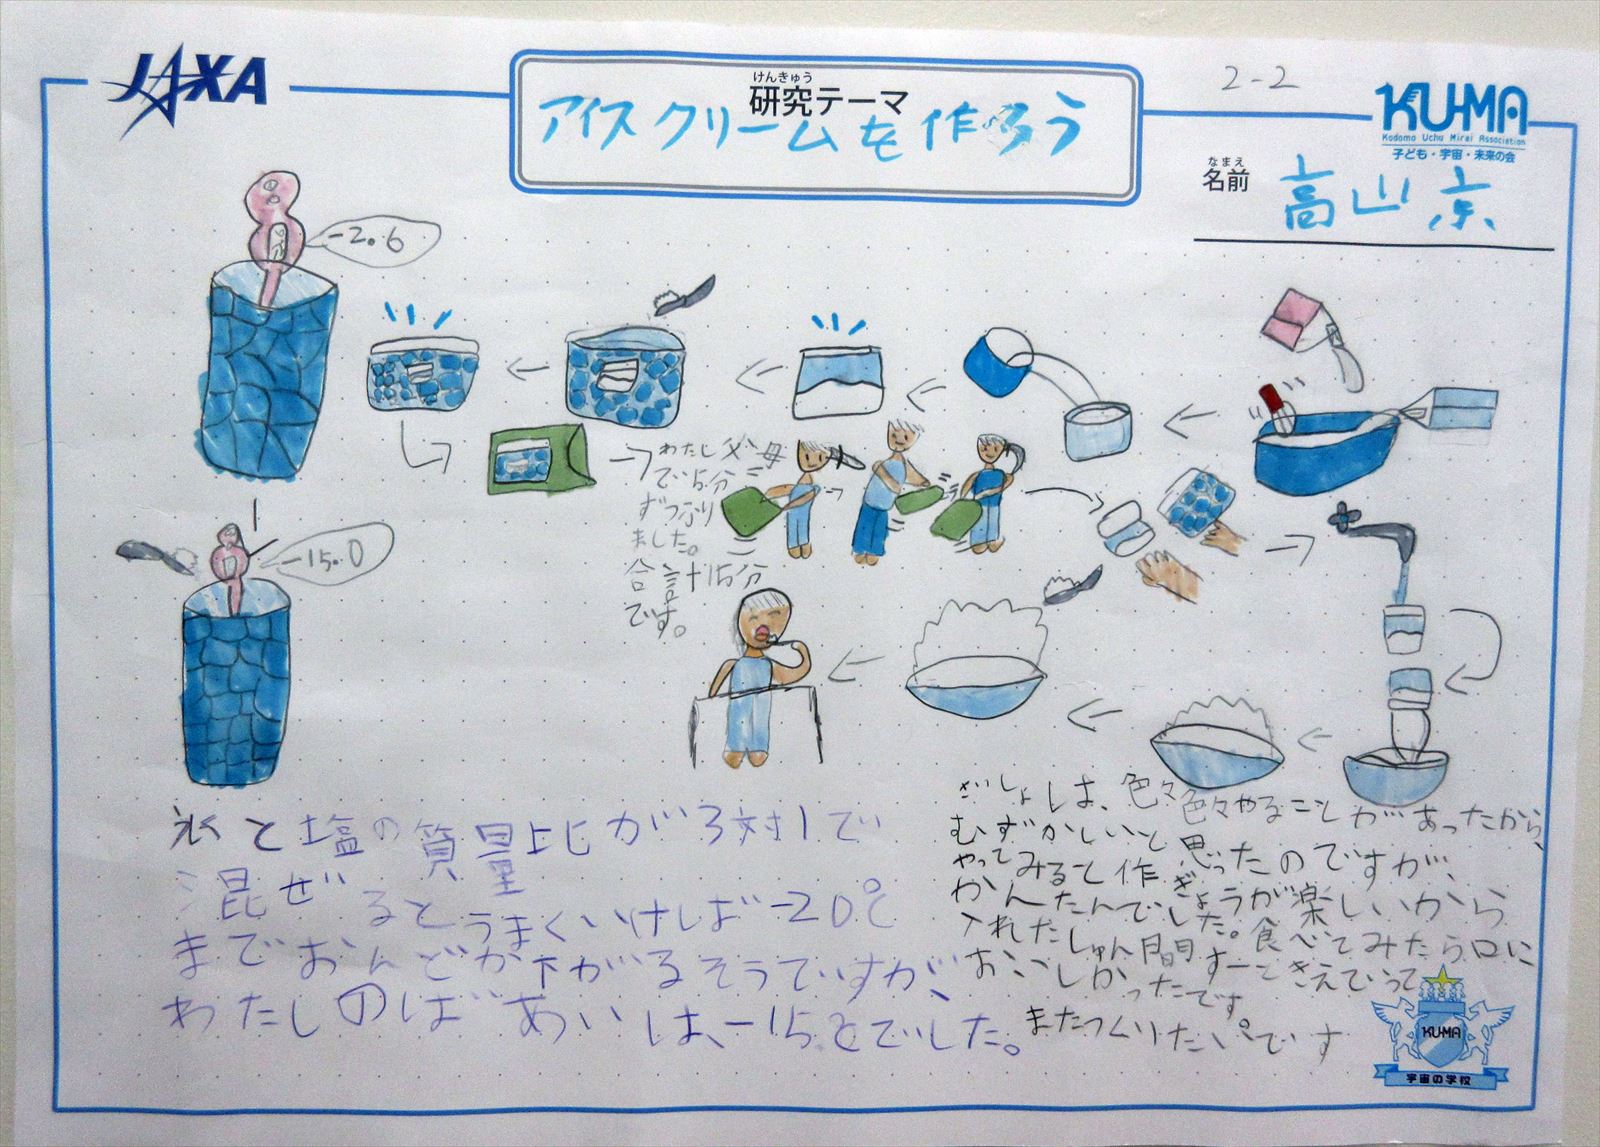 JAXA
けんきゅう
研究テーマ
アイスクリームを作ろう
2-2
KU-MA
Kodomo Uchu Mirai Association
子ども・宇宙・未来の会
なまえ
名前
高山京
-2.6
わたし父母
で5分
ずつふり
ました。
合計15分
です。
-15.0
氷と塩の質量比が3対1で
混ぜるとうまくいけば-20℃
までおんどが下がるそうですが、
わたしのばあいは、-15℃でした。
さいしょは、色々色々やることがあったから、
むずかしいと思ったのですが、
やってみると作ぎょうが楽しいから
かんたんでした。食べてみたら口に
入れたしゅん間すーときえていって
おいしかったです。
またつくりたいです
KU-MA
宇宙の学校